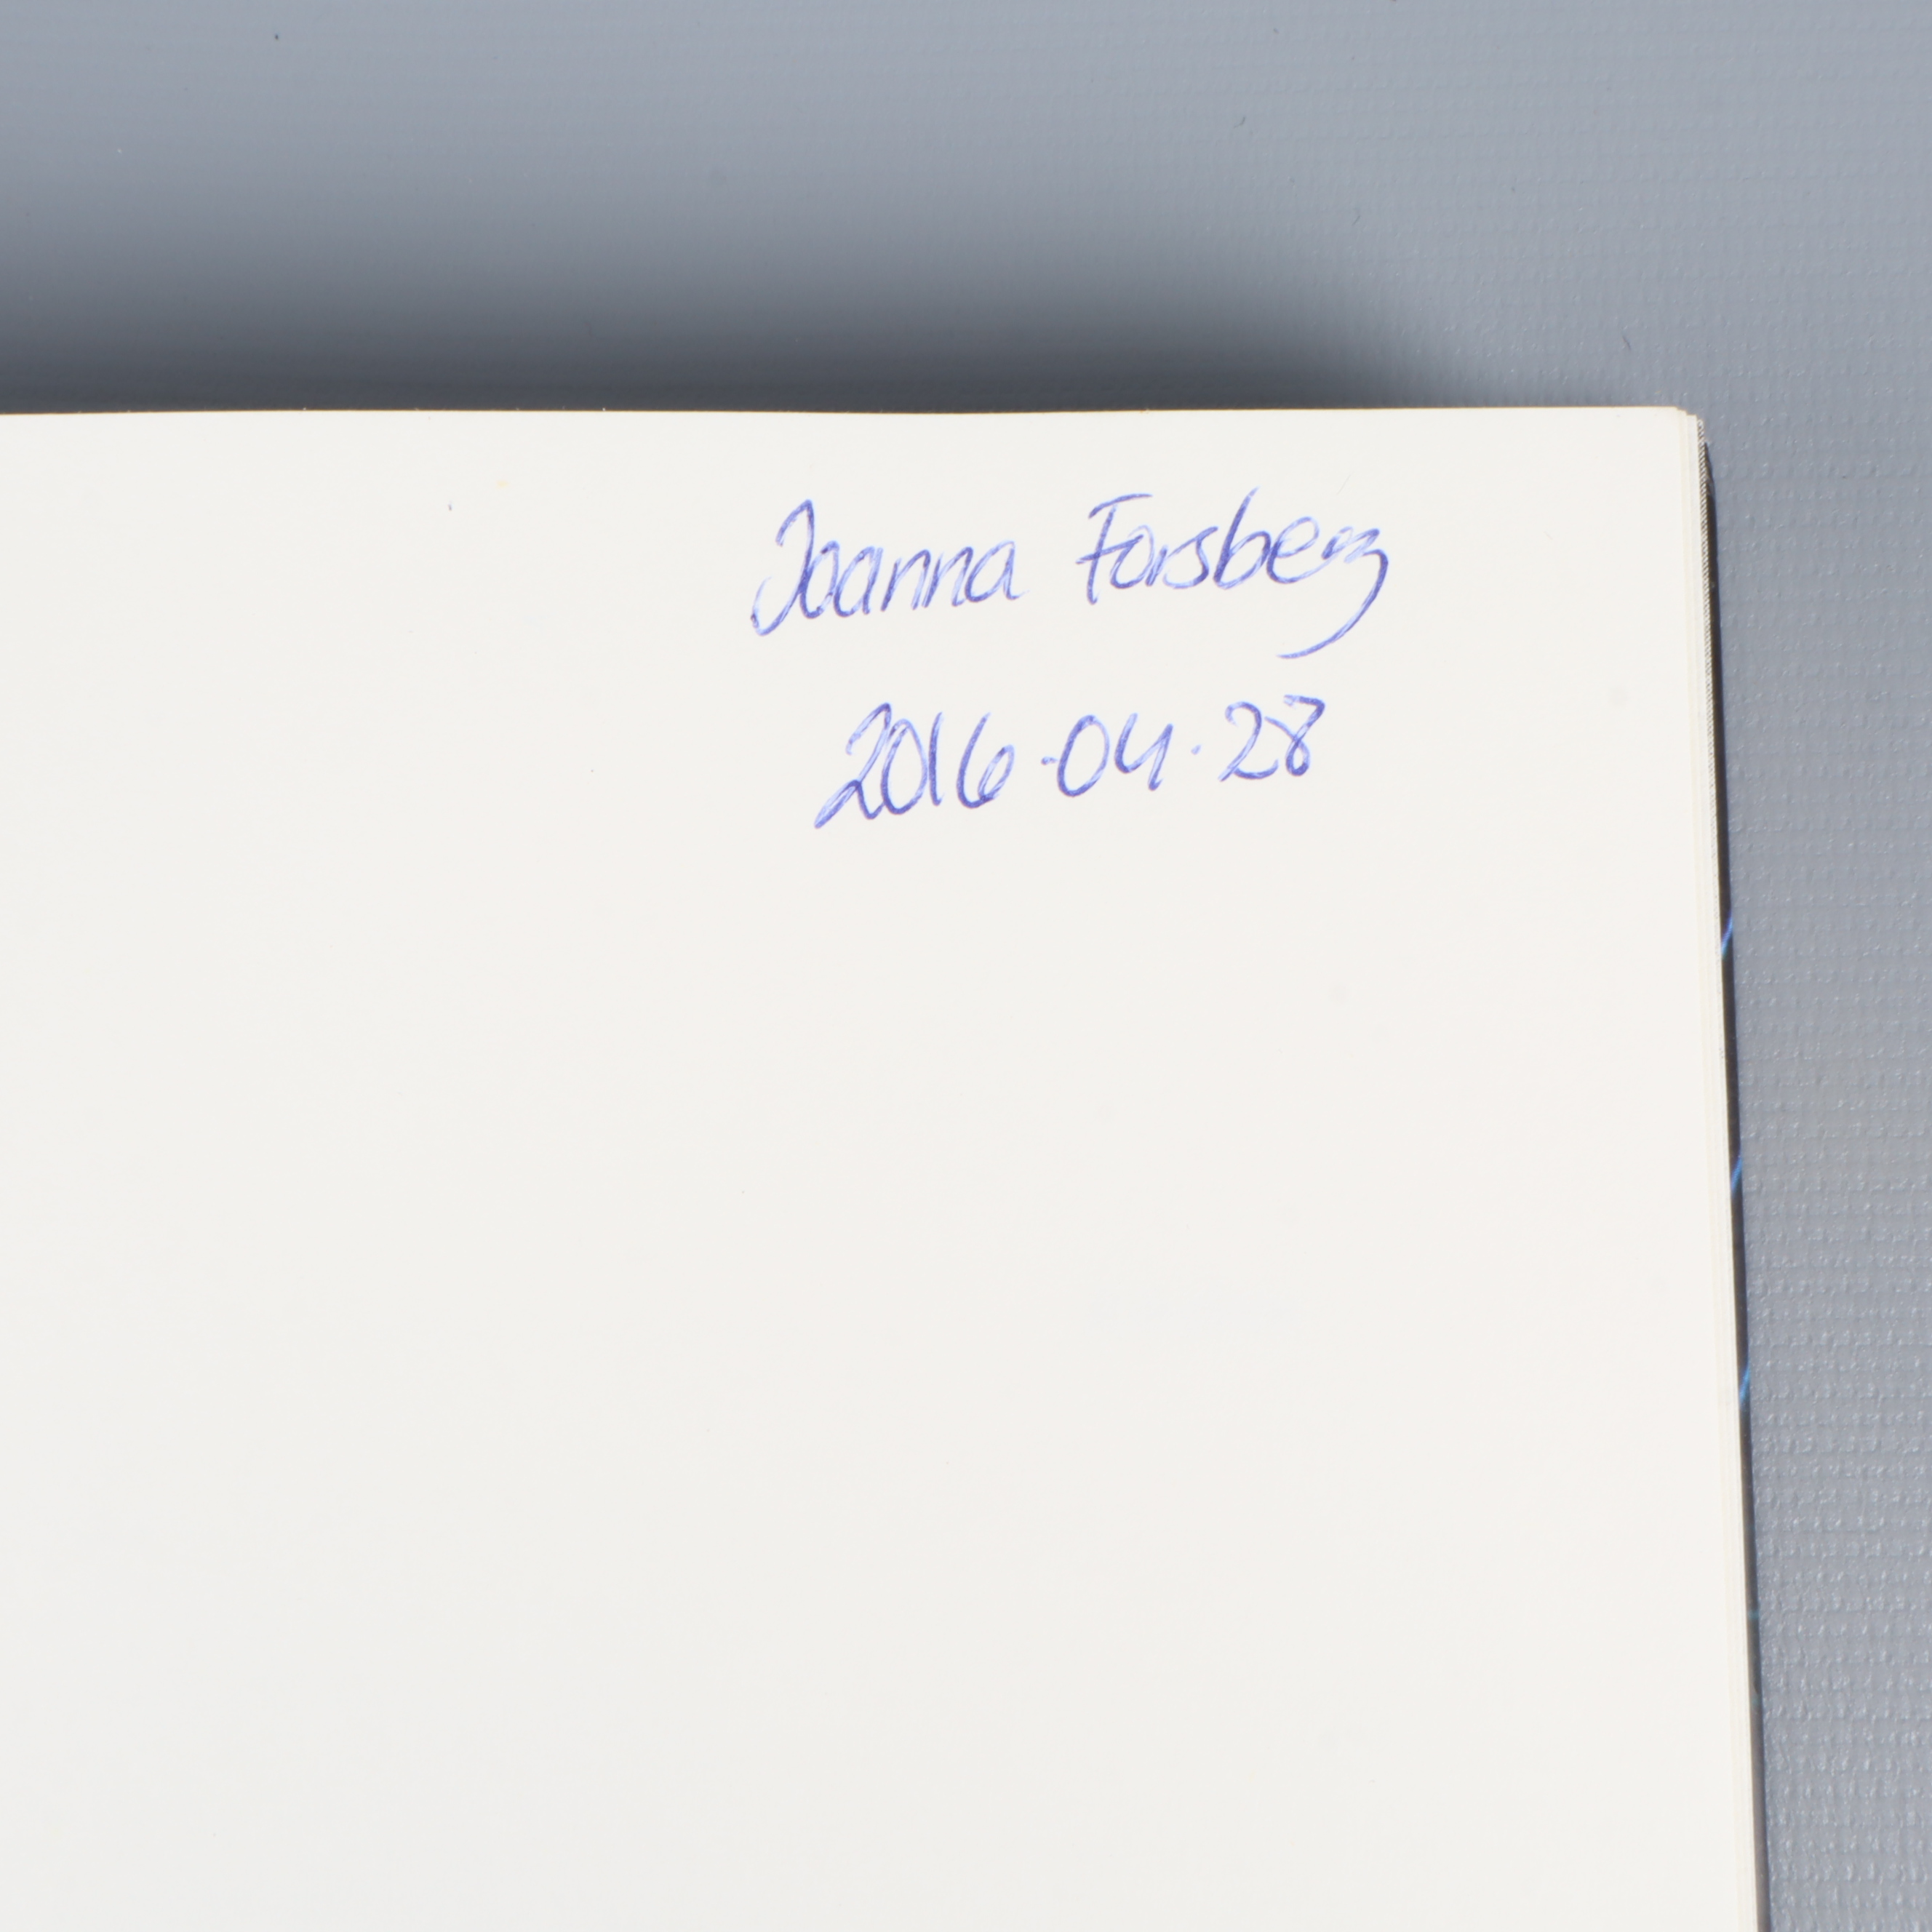 Joanna Forsberg
2016-04-28